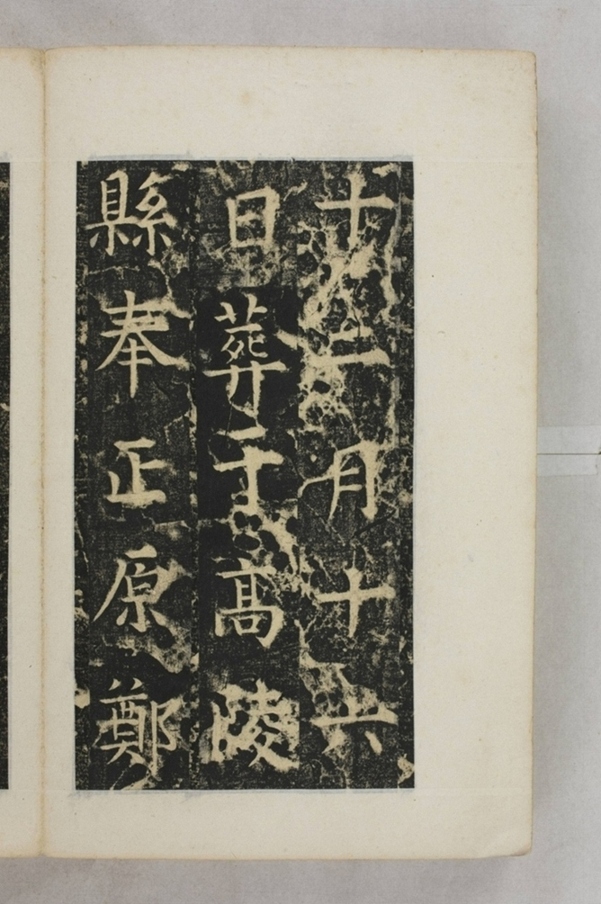 十二月十六
日葬于高陵
縣奉正原鄭